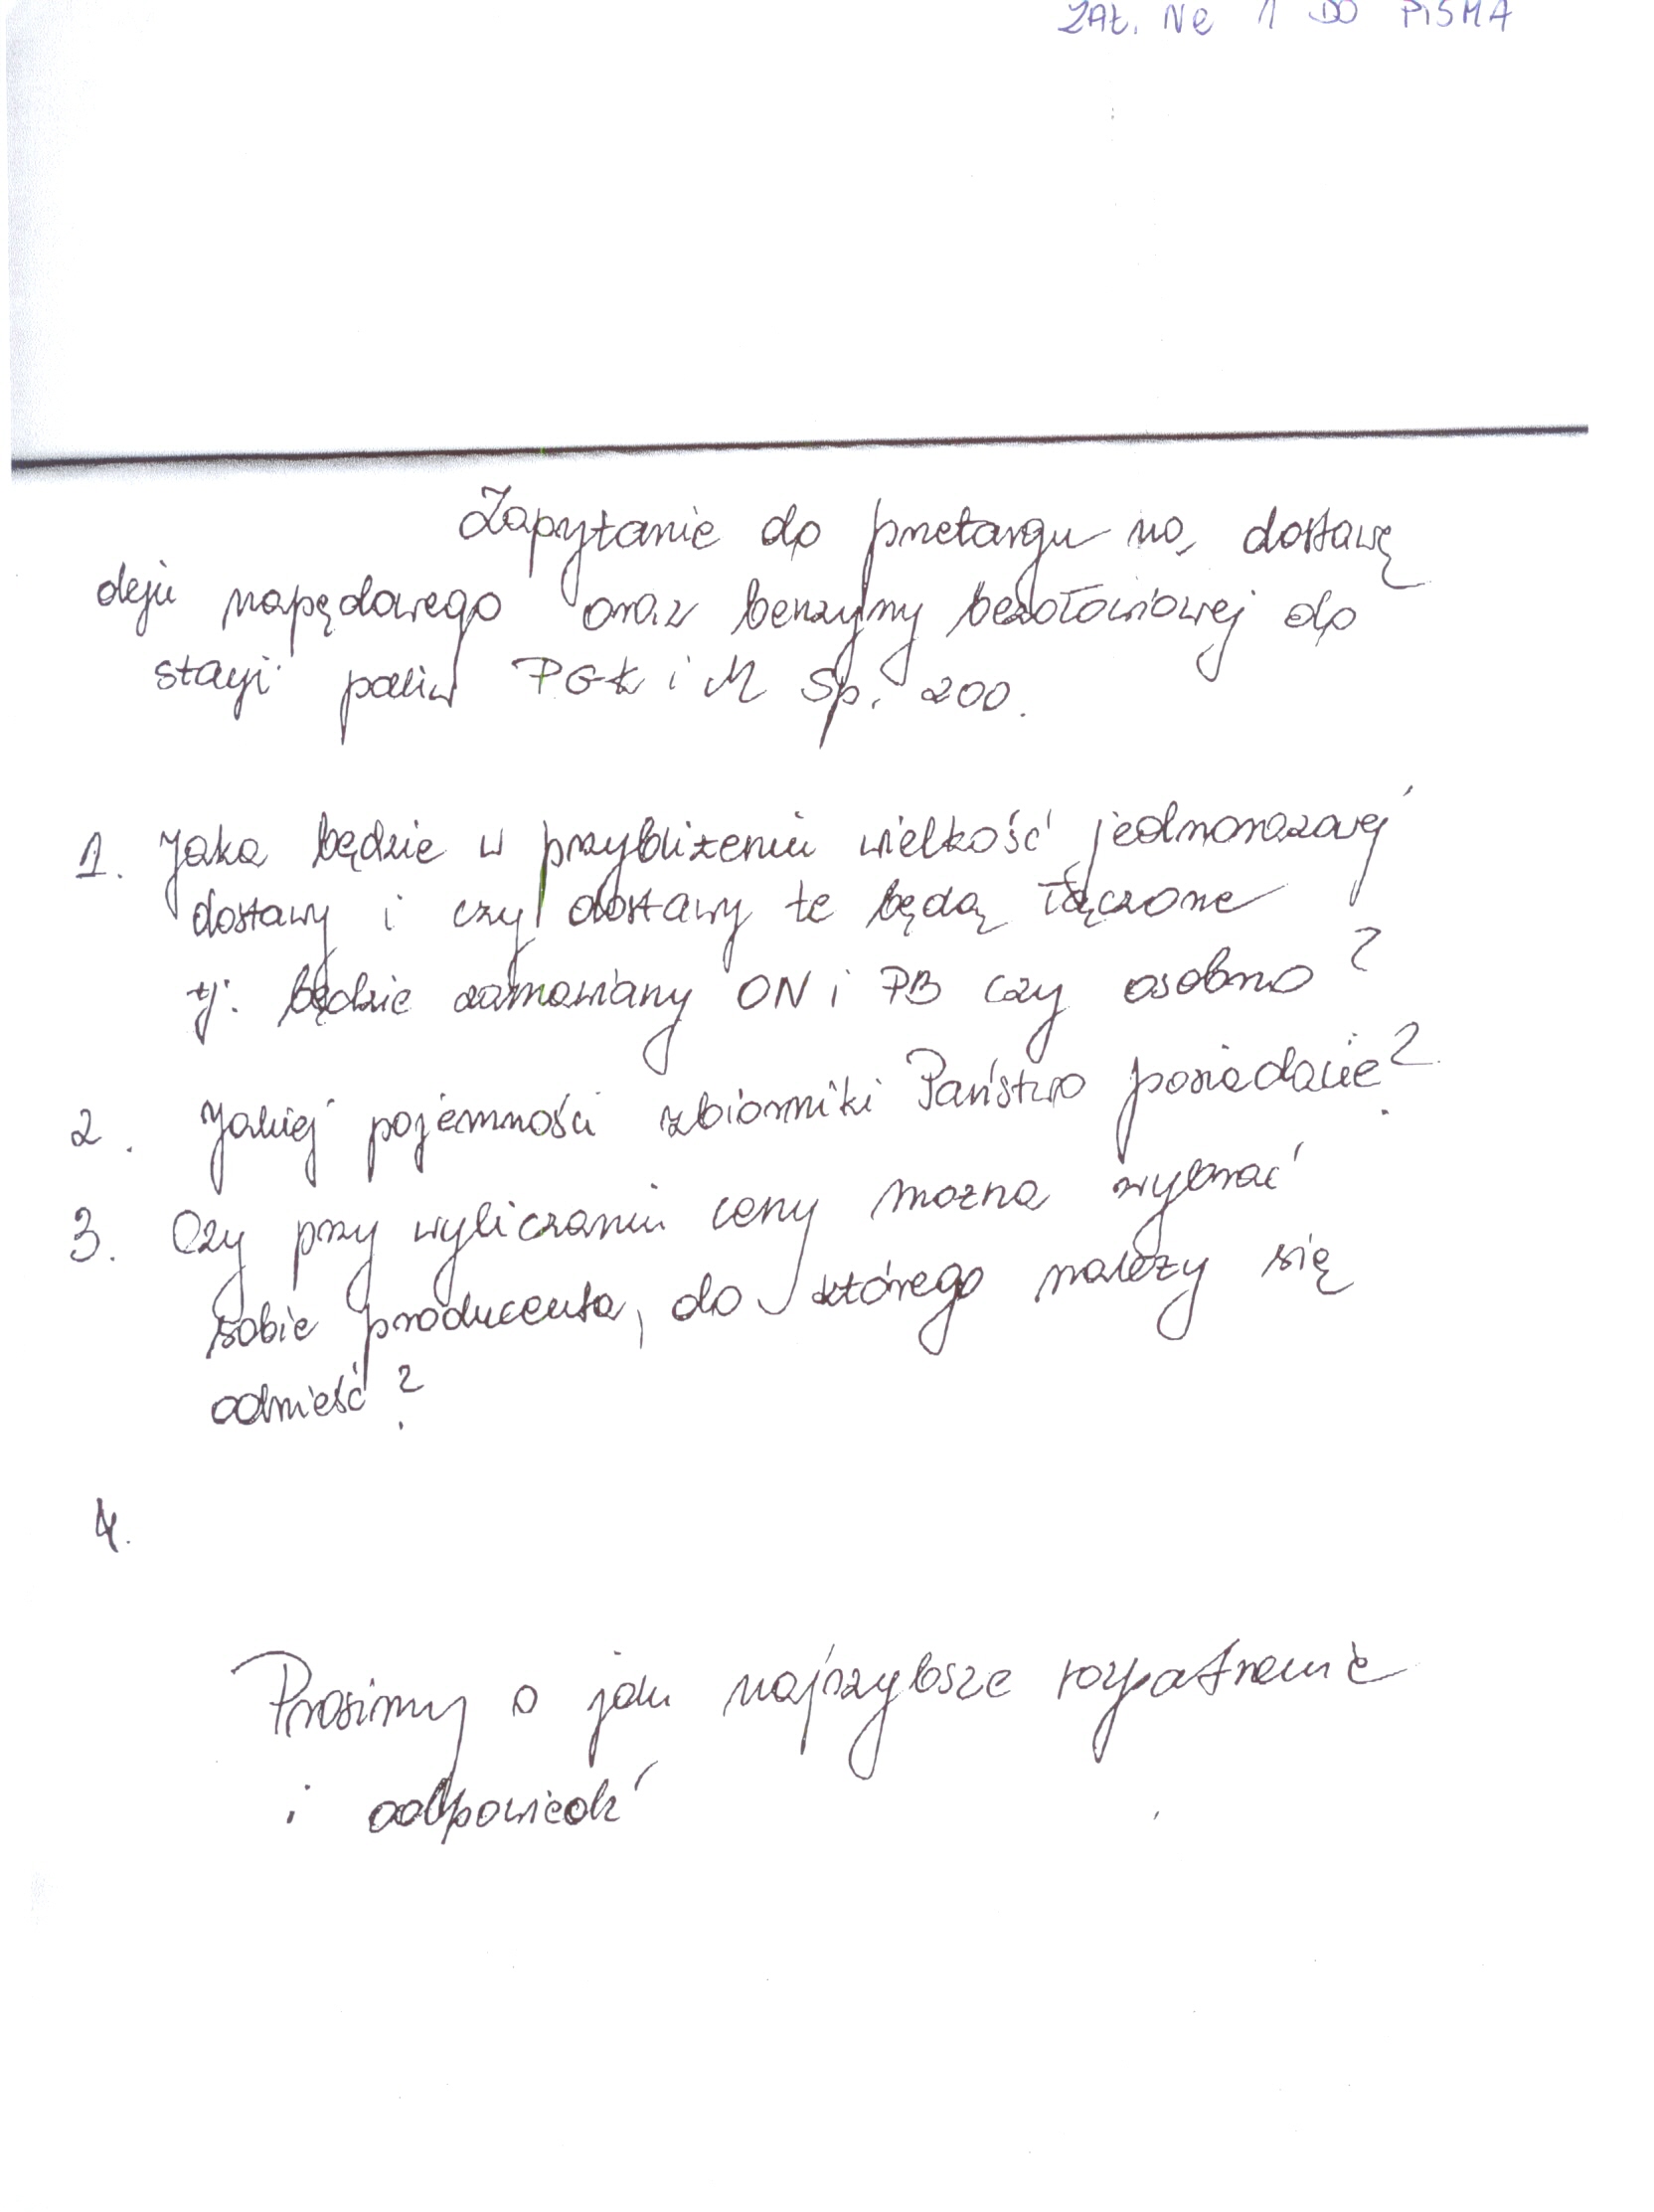 ZAŁ. NR 1 DO PISMA
Zapytanie do przetargu na dostawę
oleju napędowego oraz benzyny bezołowiowej do
stacji paliw PGK i M Sp. zoo.
1. Jaka będzie w przybliżeniu wielkość jednorazowej
dostawy i czy dostawy te będą łączone
tj. będzie zamawiany ON i PB czy osobno?
2. Jakiej pojemności zbiorniki Państwo posiadacie?
3. Czy przy wyliczaniu ceny można wybrać
sobie producenta, do którego należy się
odnieść?
4.
Prosimy o jak najszybsze rozpatrzenie
i odpowiedź